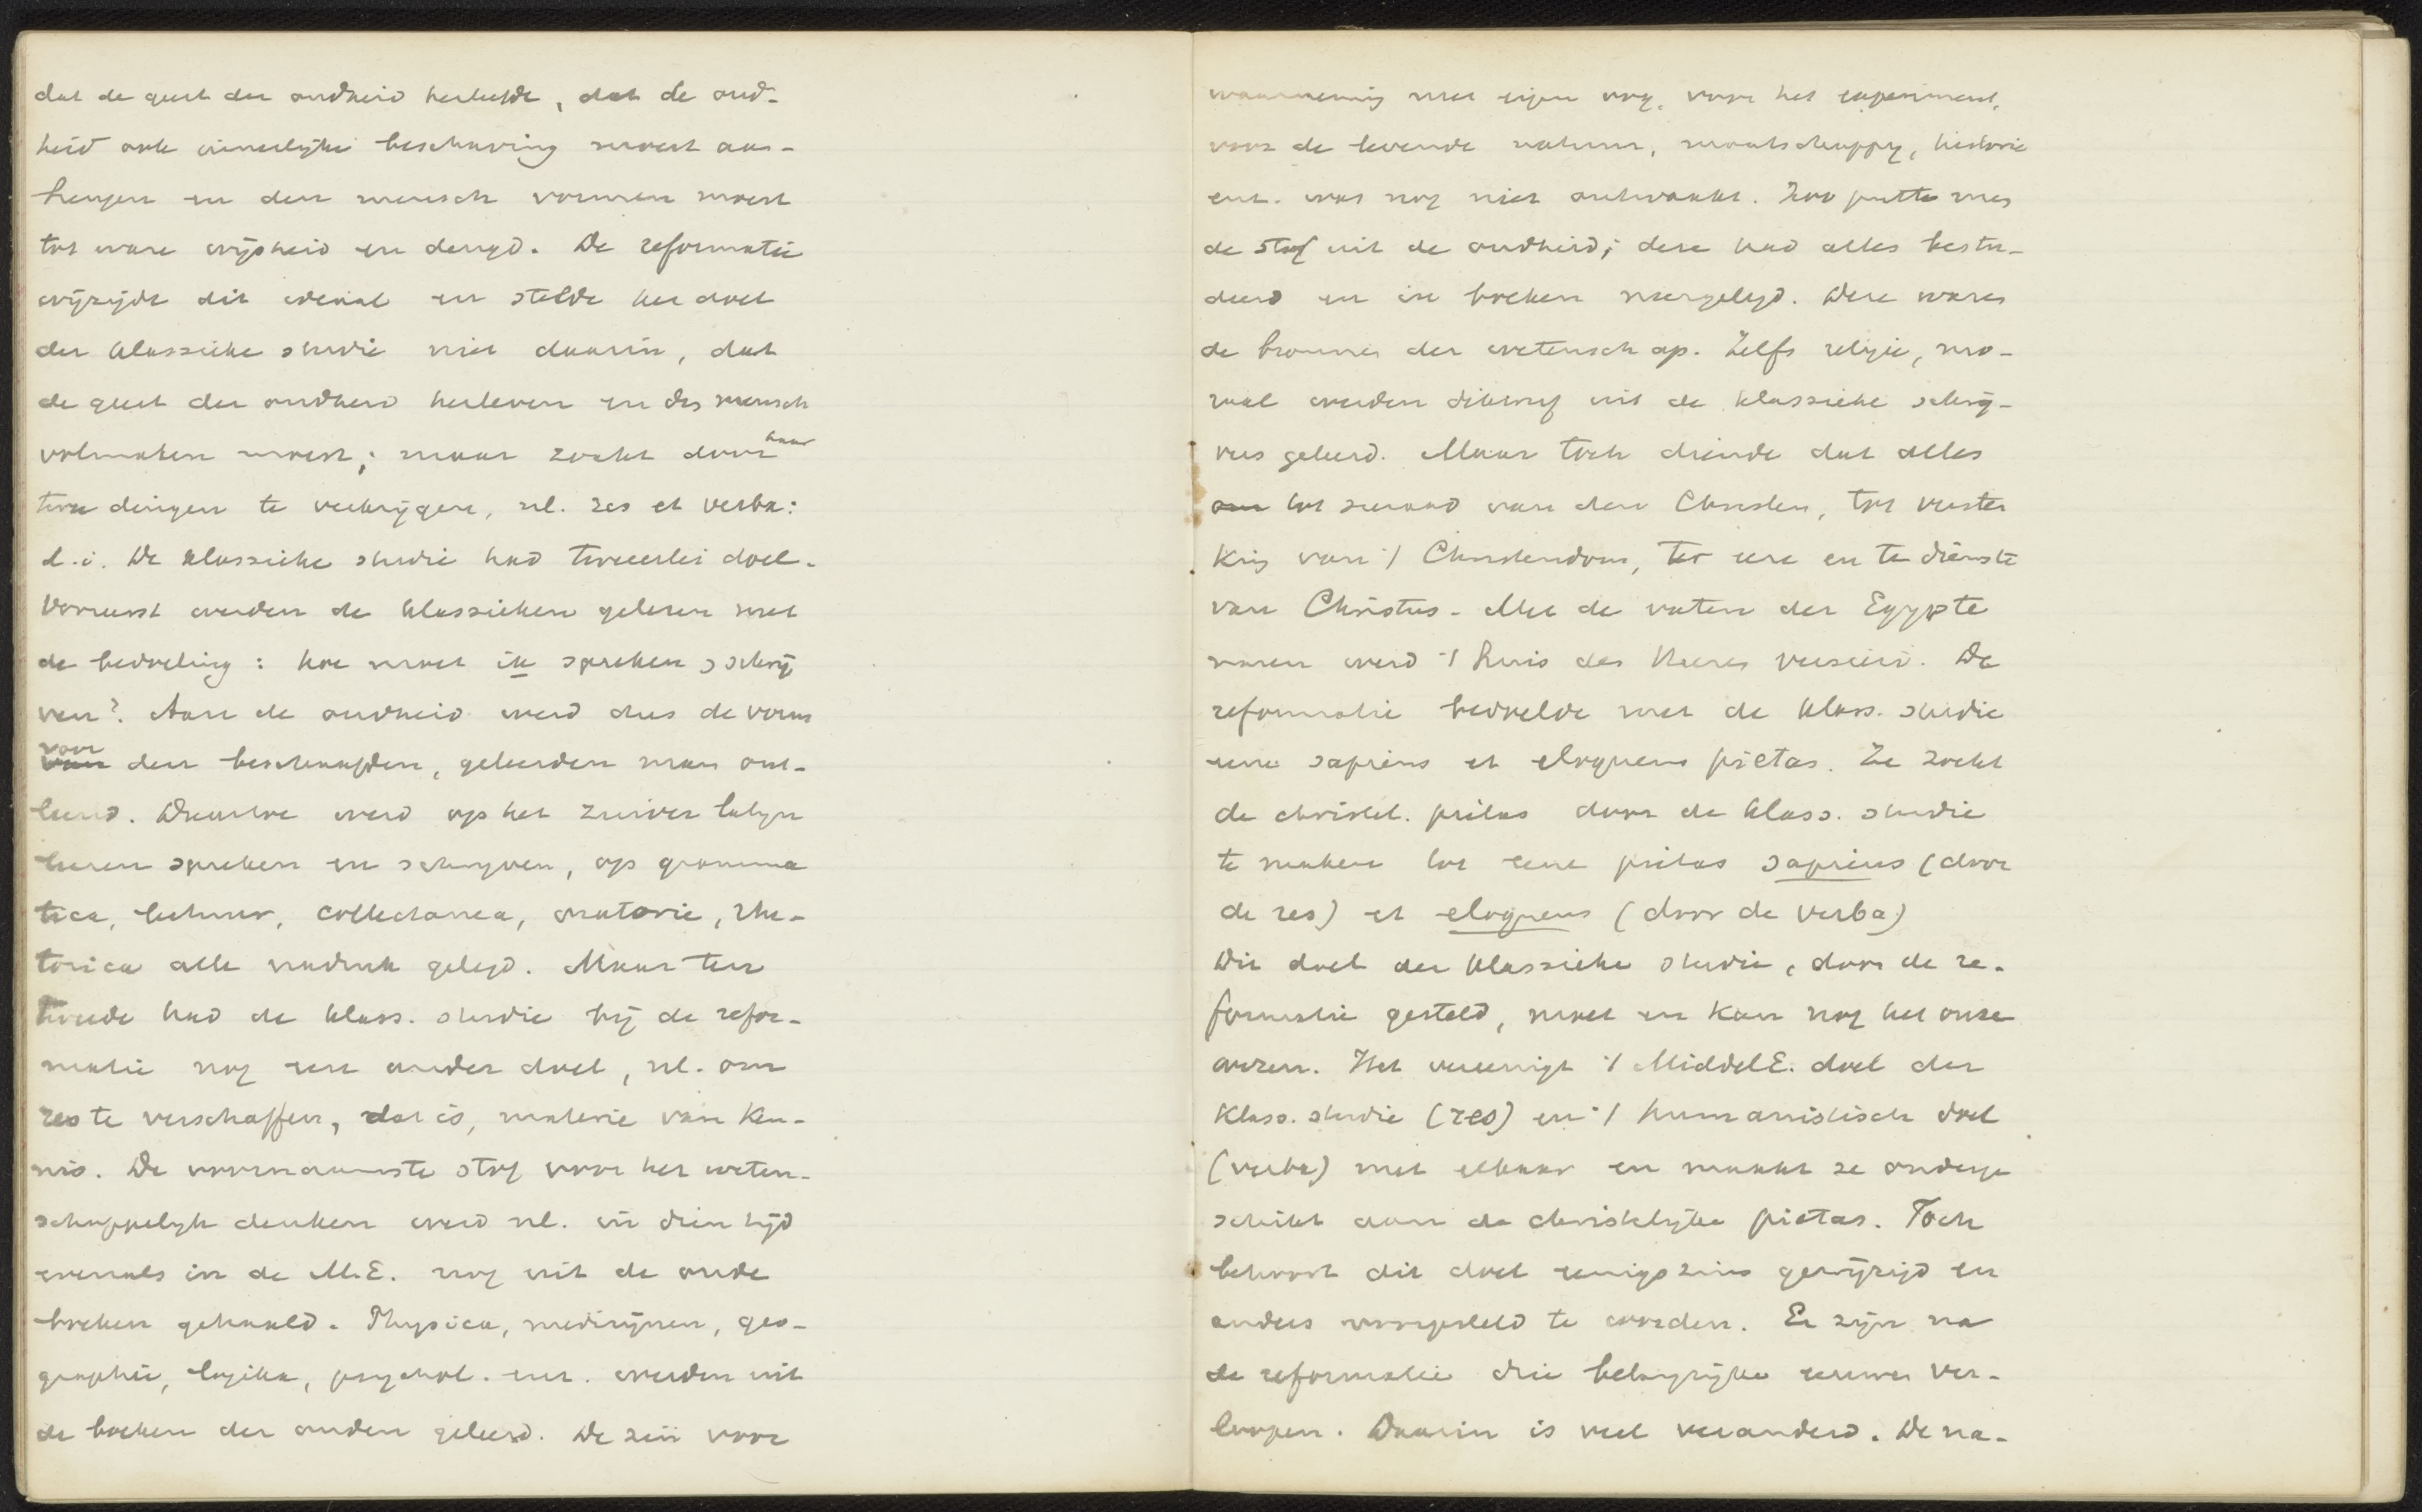 dat de geest der oudheid herleefde, dat de oud-
heid ook innerlijke beschaving moest aan-
brengen en den mensch vormen moest
tot ware wijsheid en deugd. De reformatie
wijzigde dit ideaal en stelde het doel
der klassieke studie niet daarin, dat
de geest der oudheid herleven en den mensch
volmaken moest; maar zocht door haar
twee dingen te verkrijgen, nl. res et verba:
d.i. De klassieke studie had tweeerlei doel.
Vooreerst werden de klassieken gelezen met
de bedoeling: hoe moet ik spreken, schrij
ven? Aan de oudheid werd dus de vorm
voor den beschaafden, geleerden man ont-
leend. Daartoe werd op het zuiver latijn
leeren spreken en schrijven, op gramma
tica, lectuur, collectanea, oratorie, rhe-
torica alle nadruk gelegd. Maar ten
tweede had de klass. studie bij de refor-
matie nog een ander doel, nl. om
res te verschaffen, dat is, materie van ken-
nis. De voornaamste stof voor het weten-
schappelijk denken werd nl. in dien tijd
evenals in de M.E. nog uit de oude
boeken gehaald. Physica, medicijnen, geo-
graphie, logika, psychol. enz. werden uit
de boeken der ouden geleerd. De zin voor
waarneming met eigen oog, voor het experiment,
voor de levende natuur, maatschappij, historie
enz. was nog niet ontwaakt. Zoo putte men
de stof uit de oudheid; deze had alles bestu-
deerd en in boeken neergelegd. Deze waren
de bronnen der wetenschap. Zelfs religie, mo-
raal werden dikwerf uit de klassieke schrij-
vers geleerd. Maar toch diende dat alles
om tot sieraad van den Christen, tot verster
king van 't Christendom, ter eere en te dienste
van Christus. Met de vaten der Egypte
naren werd 't huis des Heeren versierd. De
reformatie bedoelde met de klass. studie
eene sapiens et eloquens pietas. Ze zocht
de christel. pietas door de klass. studie
te maken tot eene pietas sapiens (door
de res) et eloquens (door de verba)
Dit doel der klassieke studie, door de re-
formatie gesteld, moet en kan nog het onze
wezen. Het vereenigt 't MiddelE. doel der
klass. studie (res) en 't humanistisch doel
(verba) met elkaar en maakt ze onderge
schikt aan de christelijke pietas. Toch
behoort dit doel eenigszins gewijzigd en
anders voorgesteld te worden. Er zijn na
de reformatie drie belangrijke eeuwen ver-
loopen. Daarin is veel veranderd. De na-